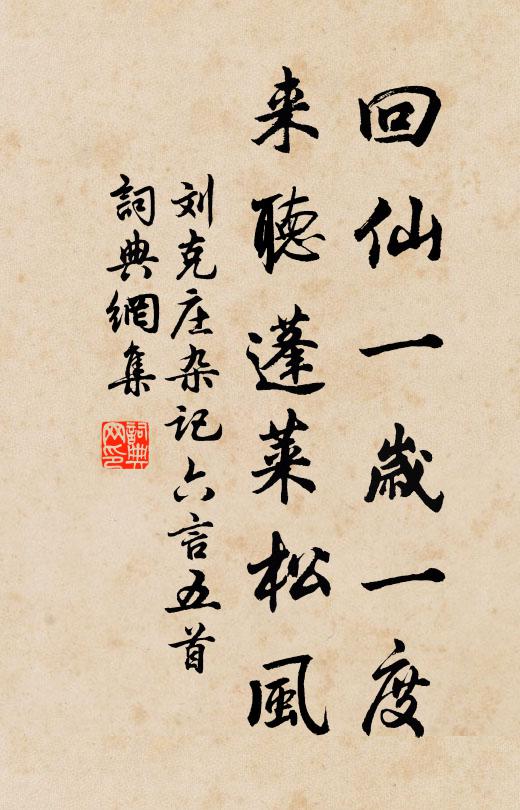 回仙一歲一度
来聽蓬萊松風
刘克庄杂记六言五首
詞典網集
詞典网印